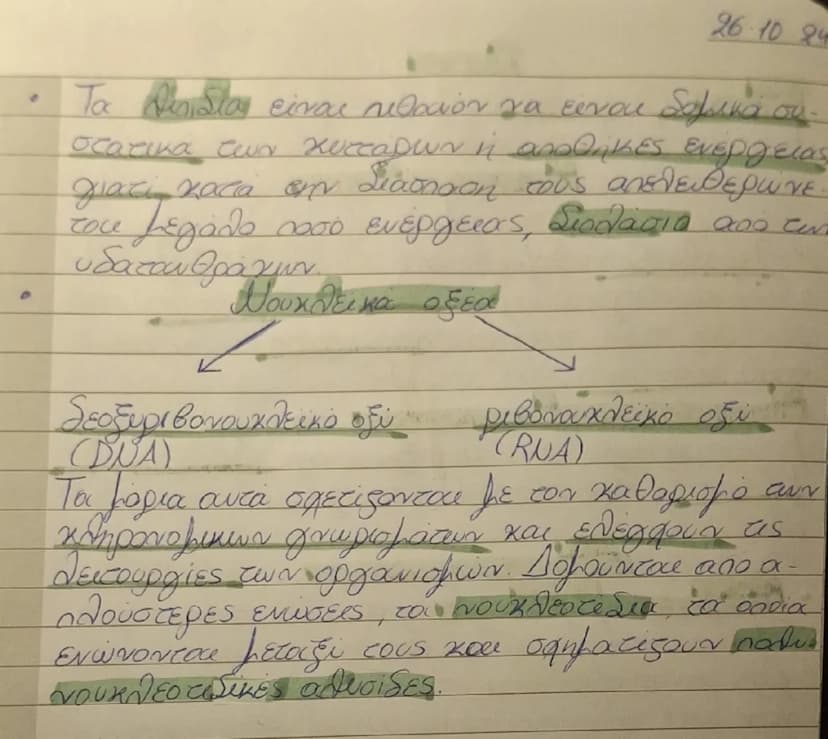 26·10 24
• Τα λιπίδια είναι πιθανόν να είναι δομικά συ-
στατικά των κυττάρων ή αποθήκες ενέργειας
γιατί κατά την διάσπαση τους απελευθερώνε-
ται μεγάλο ποσό ενέργειας, διπλάσιο από των
υδατανθράκων.
• Νουκλεϊκά οξέα
δεοξυριβονουκλεϊκό οξύ ριβονουκλεϊκό οξύ
(DNA) (RNA)
Τα μόρια αυτά σχετίζονται με τον καθαρισμό των
κληρονομικών γνωρισμάτων και ελέγχουν τις
λειτουργίες των οργανισμών. Δομούνται από α-
πλούστερες ενώσεις, τα νουκλεοτίδια, τα οποία
ενώνονται μεταξύ τους και σχηματίζουν πολυ-
νουκλεοτιδικές αλυσίδες.